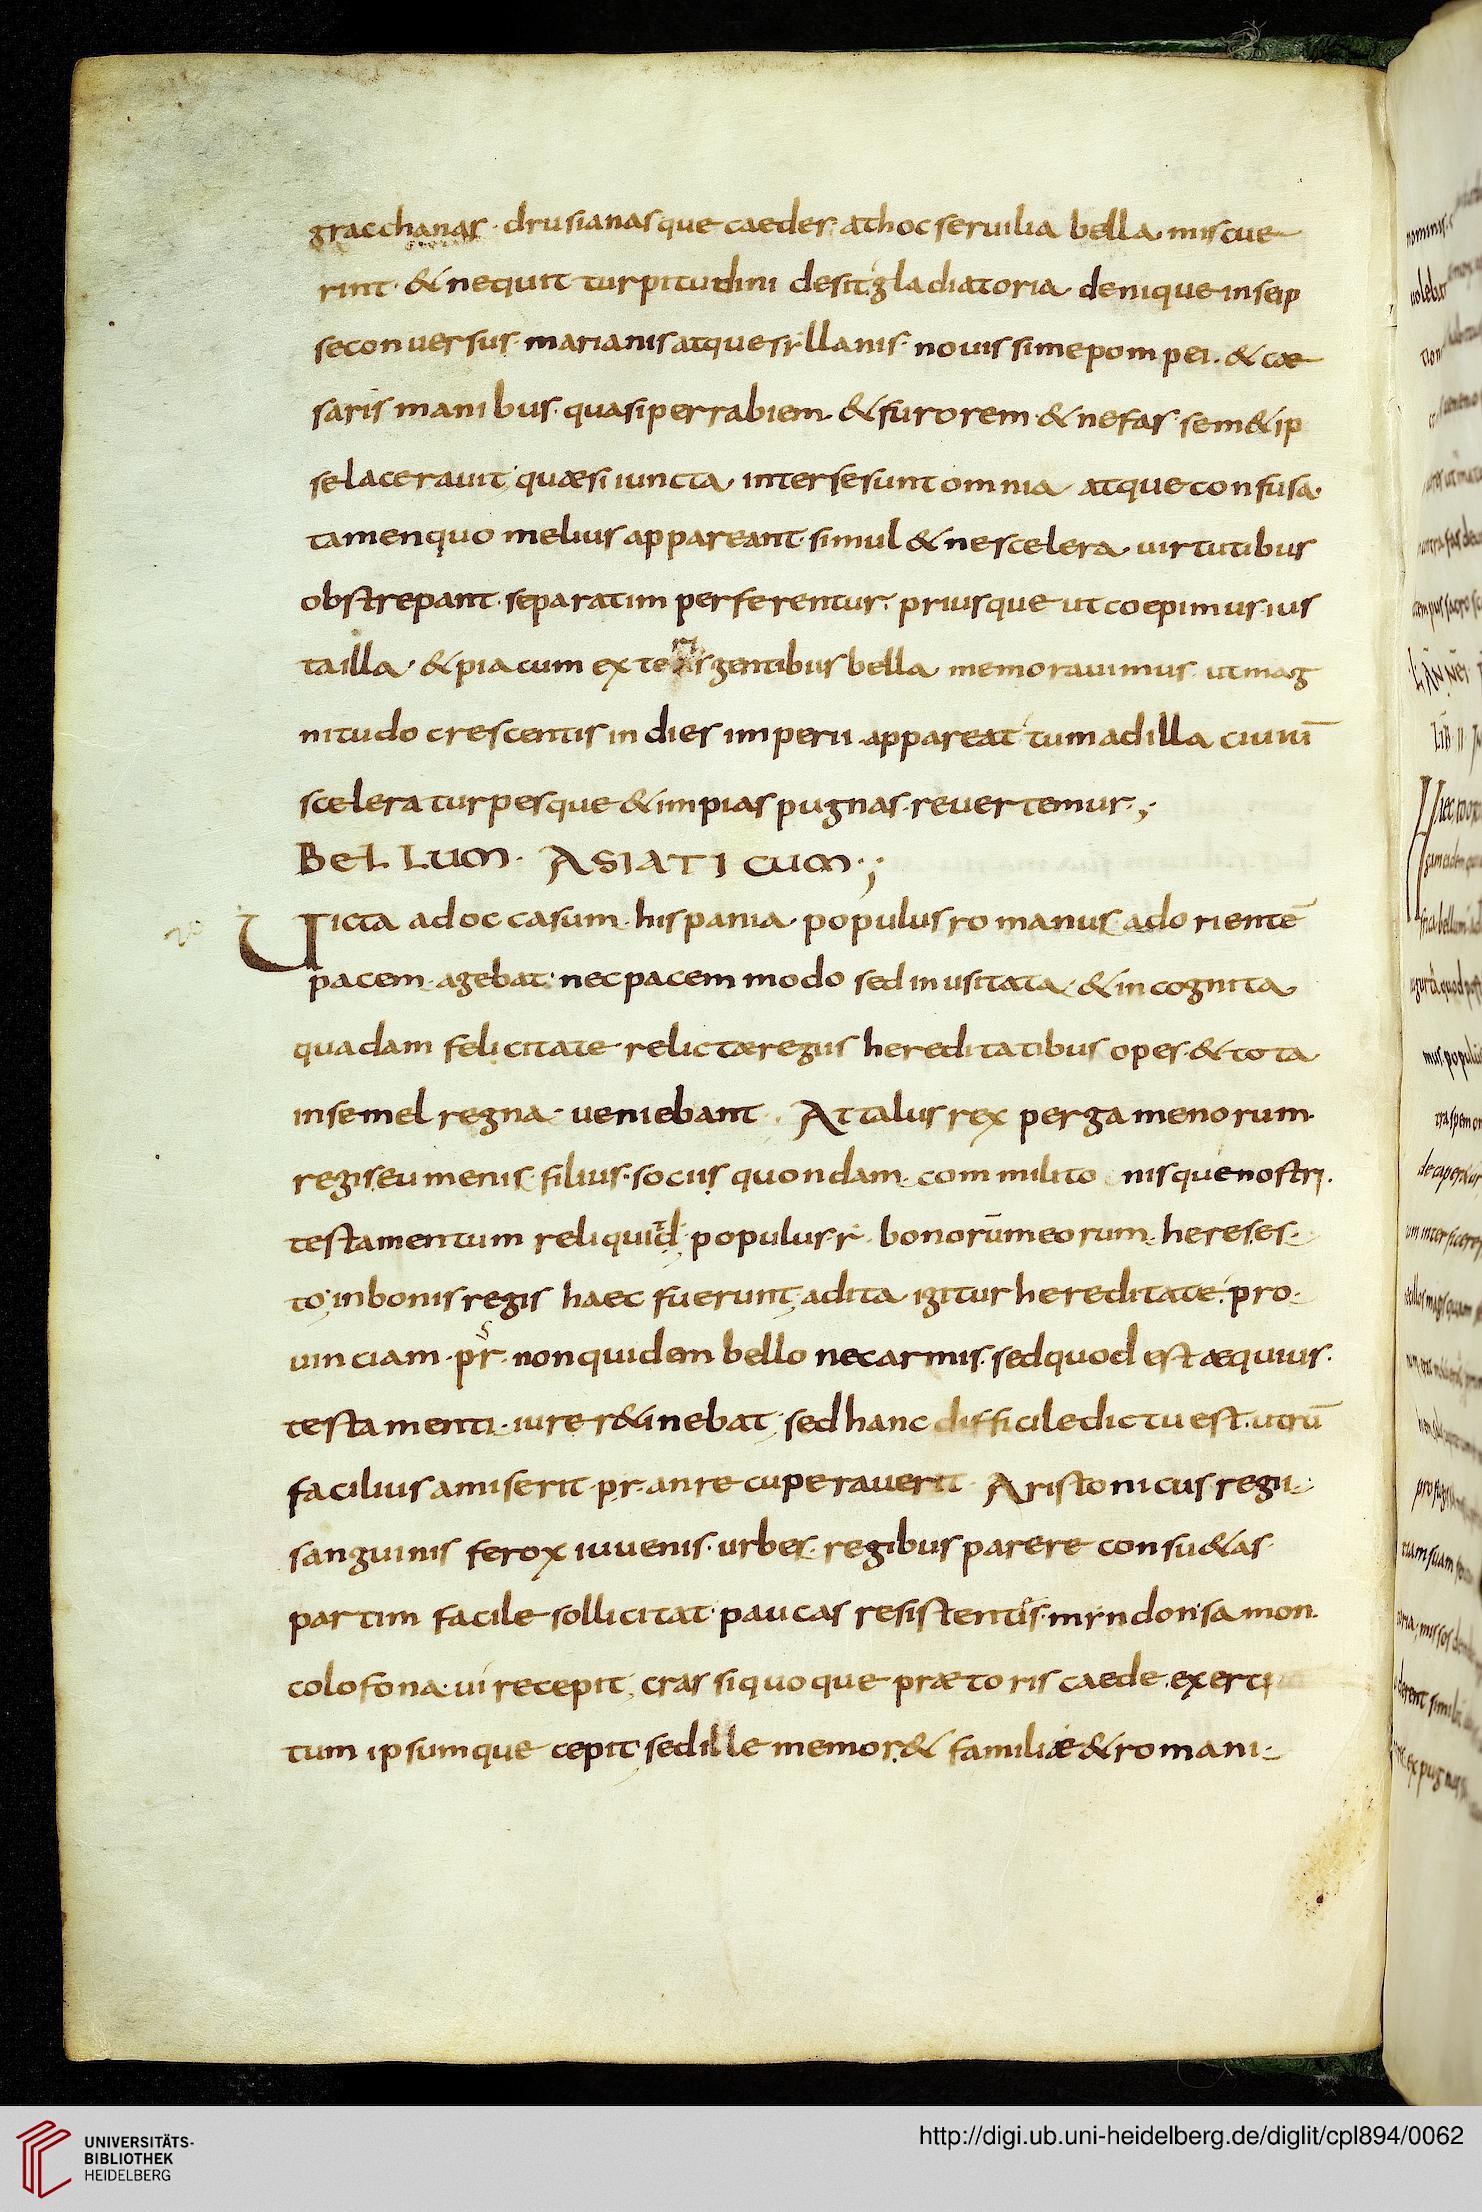 gracchanas · drusianasque caedes · athoc seruilia bella miscue
rint · & nequit turpitudini desit gladiatoria denique inseip
se conuersus · marianis atque syllanis · nouissime pompei · & cae
saris manibus · quasi per rabiem & furorem & nefas · sem&ip
se lacerauit · quae si iuncta inter se sunt omnia atque confusa ·
tamen quo melius appareant · simul & ne scelera uirtutibus
obstrepant · separatim perferentur · priusque ut coepimus · ius
ta illa · & pia cum exteris gentibus bella memorauimus ut mag
nitudo crescentis in dies imperii appareat tum ad illa ciuiū
scelera turpesque & impias pugnas · reuertemur ·;
BELLUM · ASIATICUM ·;
Uicta ad oc casum hispania populus romanus ad orientē
pacem agebat · nec pacem modo sed inusitata & incognita
quadam felicitate relictae regiis hereditatibus opes & tota
in semel regna · ueniebant · Attalus rex pergamenorum
regis eumenis filius · sociis quondam commilito nisque nostri ·
testamentum reliquid · populus · r · bonorūmeorum heres es ·
to; in bonis regis haec fuerunt; adita igitur hereditate · pro
uinciam · pr̊ · non quidem bello nec armis · sed quod est aequius ·
testamenti · iure r&inebat; sed hanc difficile dictu est · utrū
facilius amiserit · pr · an recuperauerit · Aristonicus regii
sanguinis ferox iuuenis · urbes · regibus parere consu&as ·
partim facile sollicitat · paucas resistentis · myndon · samon
colofona · ui recepit; crassi quoque praetoris caede exerci
tum ipsumque cepit; sed ille memor & familiae & romani
UNIVERSITÄTS-
BIBLIOTHEK
HEIDELBERG
http://digi.ub.uni-heidelberg.de/diglit/cpl894/0062